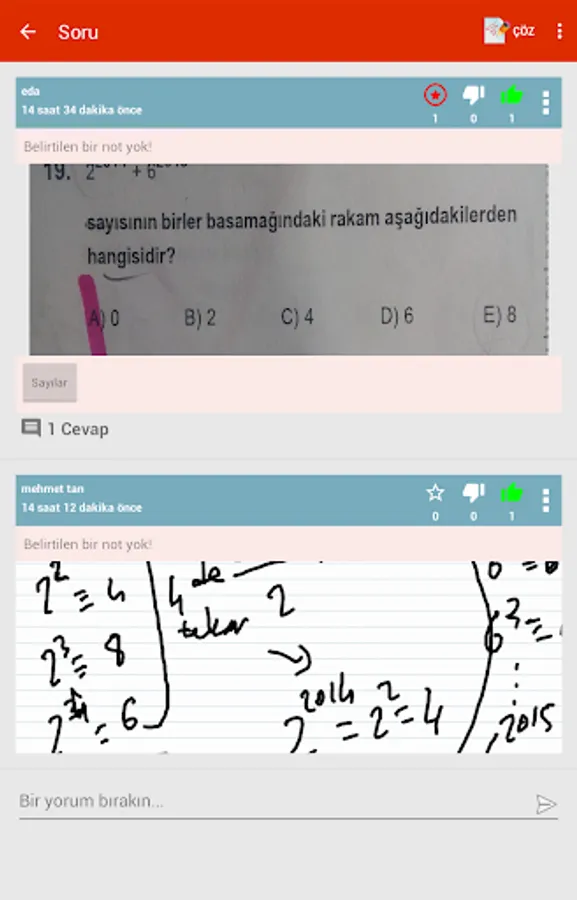 Soru
çöz
eda
14 saat 34 dakika önce
1 0 1
Belirtilen bir not yok!
19. 2 + 6
sayısının birler basamağındaki rakam aşağıdakilerden
hangisidir?
A) 0 B) 2 C) 4 D) 6 E) 8
Sayılar
1 Cevap
mehmet tan
14 saat 12 dakika önce
0 0 1
Belirtilen bir not yok!
2² ≡ 4
2³ ≡ 8
≡ 6
4 de
tekrar
2
2²⁰¹⁴ = 2² = 4
6³ ≡
2015
Bir yorum bırakın...